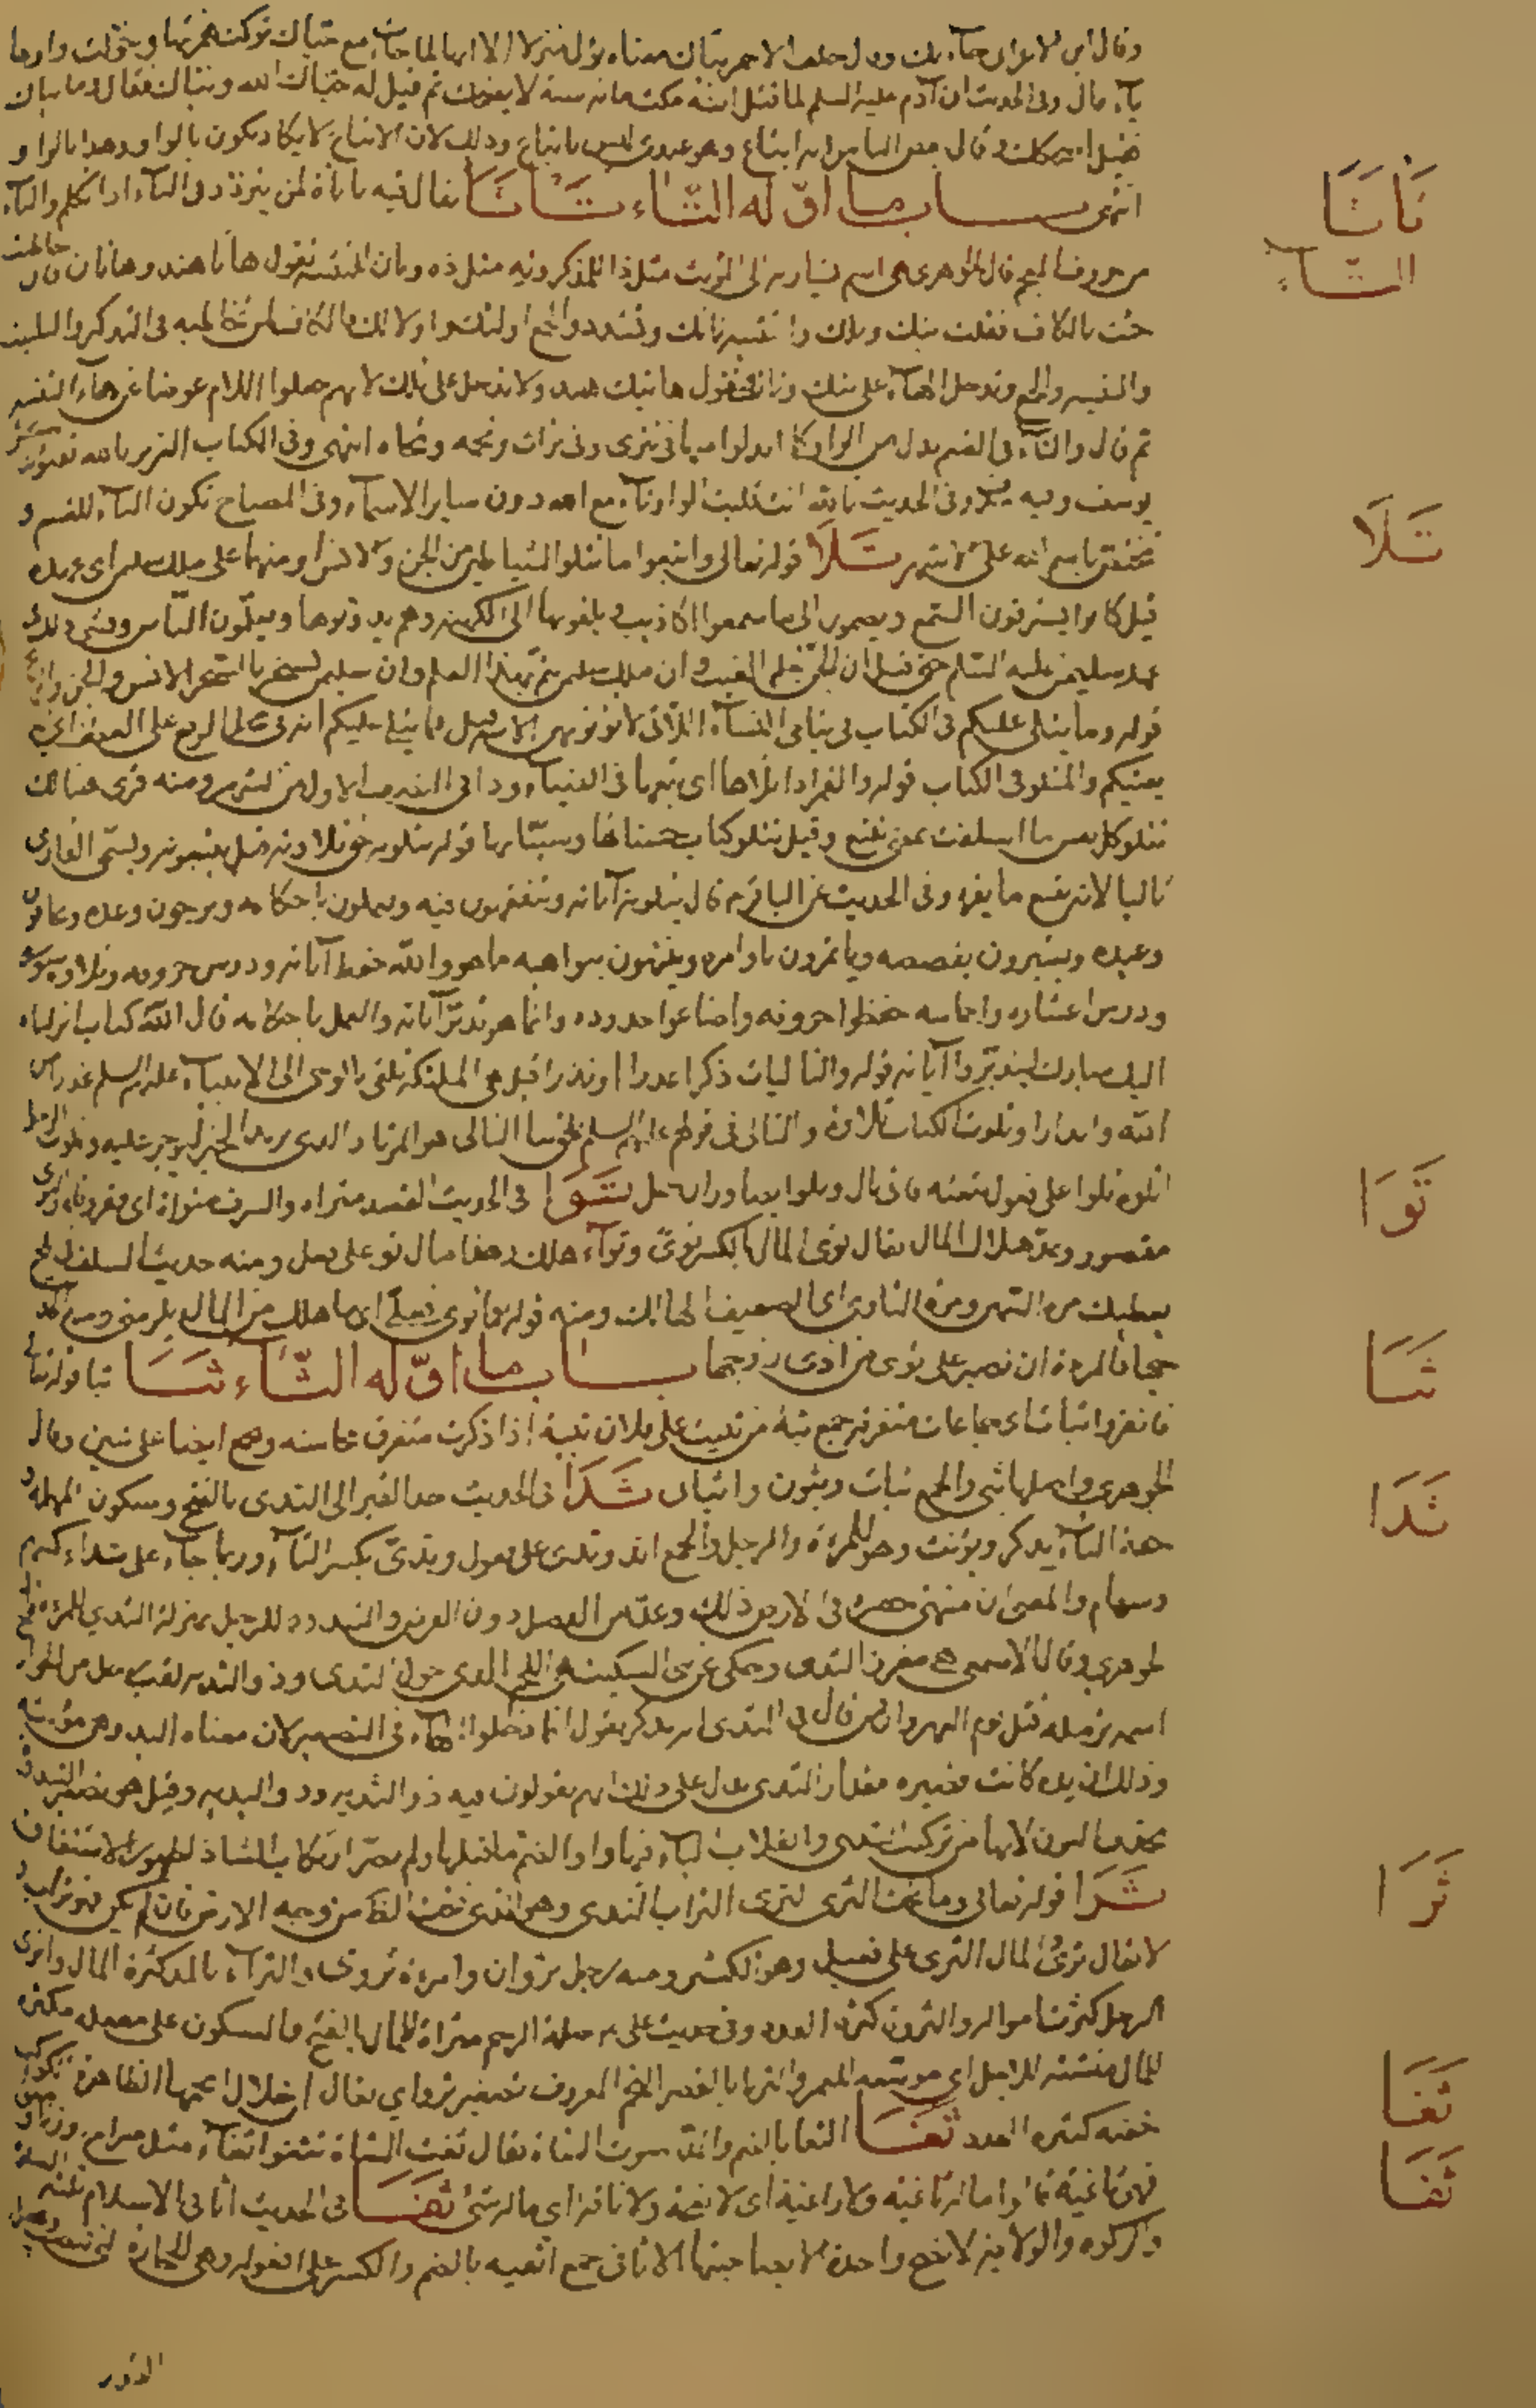 وقال ابن الاعرابي حياك بك وقال خلف الاحمر بياك معناه بوأك منزلا الا انها لما جاءت مع حياك تركت همزتها وحولت واوها
ياء قال وفي الحديث ان آدم عليه السلم لما قتل ابنه مكث مائة سنة لا يضحك ثم قيل له حياك الله وبياك فقال وما بياك
قيل اضحكك وقال بعض الناس انه اتباع وهو عندي ليس باتباع وذلك لان الاتباع لا يكاد يكون بالواو وهذا بالواو
انتهى باب ما اوّله التّاء تَأتَأ يقال فيه تاتاة لمن يتردد في التاء اذا تكلم والتاء
من حروف المعجم قال الجوهري هي اسم يشار به الى المؤنث مثل ذا للمذكر وته مثل ذه وتان للتثنية تقول هاتا هند وهاتان فان خاطبت
جئت بالكاف فقلت تيك وتلك والتثنية تانك وتشدد والجمع اولئك واولالك فالكاف لمن تخاطبه في التذكير والتانيث
والتثنية والجمع وتدخل الهاء على تيك وتاك فتقول هاتيك هند ولا تدخل على تلك لانهم جعلوا اللام عوضا عن هاء التنبيه
ثم قال والتاء في القسم بدل من الواو كما ابدلوا منها في تترى وفي تراث وتخمة وتجاه انتهى وفي الكتاب العزيز تالله تفتؤ تذكر
يوسف وفيه وفي الحديث تالله انت قلبت الواو تاء مع الله دون ساير الاسماء وفي المصباح تكون التاء للقسم و
تختص باسم الله على الاشهر تَلَا قوله تعالى واتبعوا ما تتلوا الشياطين من الجن والانس او منهما على ملك سليمن اي عهده
قيل كانوا يسترقون السمع ويضمون الى ما سمعوا اكاذيب ويلقونها الى الكهنة وهم يدونونها ويعلّمون النّاس وفشى ذلك في
عهد سليمن عليه السّلم حتى قيل ان الجن تعلم الغيب وان ملك سليمن تمّ بهذا العلم وان سليمن تسخر بالسحر الانس والجن والريح
قوله وما يتلى عليكم في الكتاب في يتامى النساء اللاتي لا تؤتونهن الاية قيل ما يتلى عليكم انه في محل الرفع على العطف اي الله
يفتيكم والمتلو في الكتاب قوله والقمر اذا تلاها اي تبعها في الضياء وذا في النصف الاول من الشهر ومنه قرئ هنالك
تتلو كل نفس ما اسلفت بمعنى تتبع وقيل تتلو كتاب حسناتها وسيّئاتها قوله يتلونه حق تلاوته قيل يتبعونه ويسمّى القارئ
تاليا لانه يتبع ما يقرء وفي الحديث عن الباقر ع قال يتلون آياته ويتفقهون فيه ويعملون باحكامه ويرجون وعده ويخافون
وعيده ويعتبرون بقصصه وياتمرون باوامره وينتهون بنواهيه ما هو والله حفظ آياته ودرس حروفه وتلاوة سوره
ودرس اعشاره واخماسه حفظوا حروفه واضاعوا حدوده وانما هو تدبّر آياته والعمل باحكامه قال الله كتاب انزلناه
اليك مبارك ليدبّروا آياته قوله والتاليات ذكرا عذرا او نذرا قيل هي الملئكة تلقى بالوحي الى الانبياء عليهم السلم عذرا من
الله وانذارا وتلوت الكتاب تلاوة والتالي في قولهم عليهم السلم يلحق بنا التالي هو المرتاد الذي يريد الخير ليوجر عليه وتلوت الرجل
اتلوه تلوا على فعول تبعته فانا تال وتلو ايضا وزان حمل تَوَا في الحديث القصد مثراة والسرف متواة اي فقر والتوى
مقصور ويمدّ هلاك المال يقال توي المال بالكسر توىً وتواء هلك وهذا مال تو على فعل ومنه حديث السلف في اللحم
يعطيك مرة السمين ومرة التاوي اي الضعيف الهالك ومنه قوله ما توى فعليّ اي ما هلك من المال يلزمني ومنه
جهاد المرءة ان تصبر على توى من اذى زوجها بابُ ما اوّله الثّاء ثَبَا ثبا قوله تعالى
فانفروا ثبات اي جماعات متفرقة جمع ثبة من ثبيت على فلان تثبية اذا ذكرت متفرق محاسنه وجمع ايضا على ثبين وقال
الجوهري واصلها ثبي والجمع ثبات وثبون واثباى ثَدَا في الحديث حد القبر الى الثدى بالفتح وسكون المهملة و
هذه الياء يذكر ويؤنث وهو للمرءة والرجل والجمع اثد وثدى على فعول وثِدىّ بكسر الثاء وربما جاء على ثداء كسهم
وسهام والمعنى ان منتهى حفره في الارض ذلك وعدّ من الفضل دون الفرض والثندوة للرجل بمنزلة الثدي للمرءة قاله
الجوهري وقال الاصمعي هي مغرز الثدي وحكى عن ابن السكيت هي اللحم الذي حول الثدى وذو الثدية لقب رجل من الخوارج
اسمه ثرملة قتل يوم النهروان فمن قال في الثدى انه مذكر يقول انما دخلوا الهاء في التصغير لان معناه اليد وهي مؤنثة
وذلك ان يده كانت قصيرة مقدار الثدى يدل على ذلك انهم يقولون فيه ذو الثدية وذو اليدية وقيل هو تصغير الثندوة
بحذف النون لانها من تركيب الثدى وانقلاب الياء فيها واوا لضم ما قبلها ولم يضرّ ارتكاب الشاذ لظهور الاشتقاق
ثَرَا قوله تعالى وما تحت الثرى الثرى التراب الندى وهو الذى تحت الظاهر من وجه الارض فان لم يكن فهو تراب و
لا يقال ثرى المال الثري على فعيل وهو الكثير ومنه رجل ثروان وامرءة ثروى والثراء بالمد كثرة المال واثرى
الرجل كثرت امواله والثروة كثرة العدد وفي حديث على ع صلة الرحم مثراة للمال بالفتح فالسكون على مفعلة مكثرة
للمال منشئة للاجل اي موسّعة للعمر والثريا بالقصر النجم المعروف تصغير ثروى يقال ان خلال انجمها الظاهرة كواكب
خفية كثيرة العدد ثَغَا الثغا بالضم والمد صوت الشاة يقال ثغت الشاة تثغوا ثغاء مثل صراخ وزنا ومعنى
فهي ثاغية وما له ثاغية ولا راغية اي لا نعجة ولا ناقة اي ما له شئ ثَفَا في الحديث اثافى الاسلام ثلثة الصلوة
والزكوة والولاية لا تصح واحدة الا بصاحبتها الاثافى جمع اثفية بالضم والكسر على افعولة وهي الحجارة التي تنصب وتجعل
القدر
تَأتَأ
التّاءِ
تَلَا
تَوَا
ثَبَا
ثَدَا
ثَرَا
ثَغَا
ثَفَا